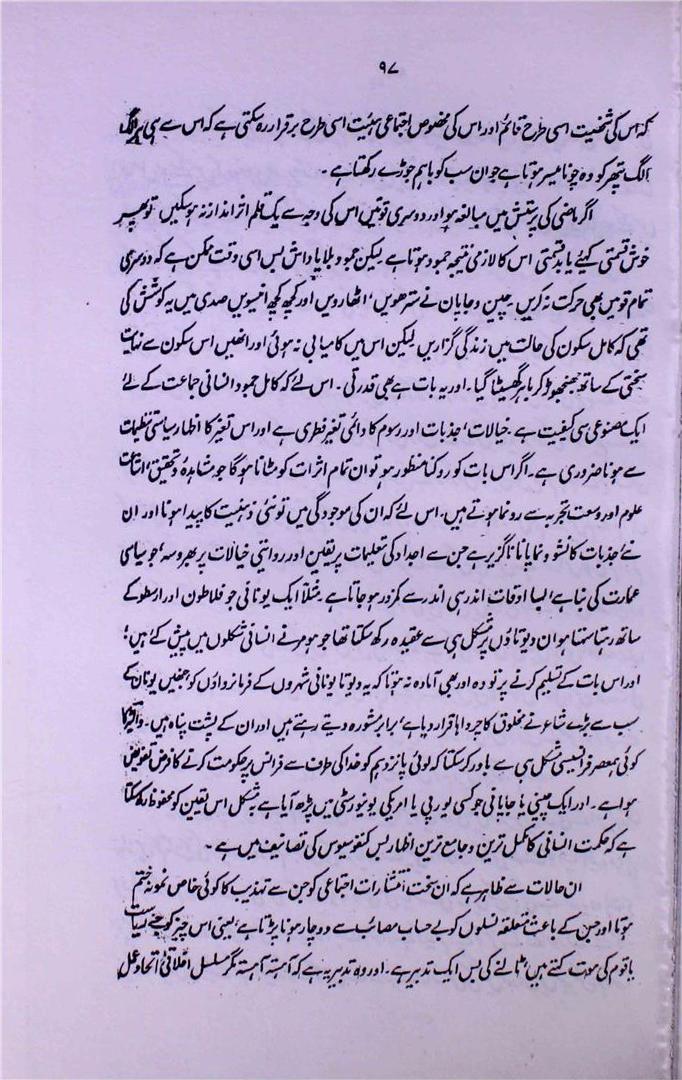 ۹۷
کہ اس کی شخصیت اسی طرح قائم اور اس کی مخصوص اجتماعی ہیئیت اسی طرح برقرار رہ سکتی ہے کہ اس سے ہی ہر الگ
الگ پتھر کو وہ چونا میسر ہوتا ہے جو ان سب کو باہم جوڑے رکھتا ہے ۔
اگر ماضی کی پرستش میں مبالغہ ہو اور دوسری قوتیں اس کی وجہ سے یک قلم اثر انداز نہ ہوسکیں تو پھر
خوش قسمتی کہئے یا بدقسمتی اس کا لازمی نتیجہ جمود ہوتا ہے لیکن جمود بلا پاداش بس اسی وقت ممکن ہے کہ دوسری
تمام قومیں بھی حرکت نہ کریں ۔ چین و جاپان نے سترھویں، اٹھارویں اور کچھ کچھ انیسویں صدی میں یہ کوشش کی
تھی کہ کامل سکون کی حالت میں زندگی گزاریں لیکن اس میں کامیابی نہ ہوئی اور انھیں اس سکون سے نہایت
سختی کے ساتھ جھنجھوڑ کر باہر گھسیٹا گیا ۔ اور یہ بات ہے بھی قدرتی ۔ اس لئے کہ کامل جمود انسانی جماعت کے لئے
ایک مصنوعی سی کیفیت ہے ۔ خیالات، جذبات اور رسوم کا دائمی تغیر فطری ہے اور اس تغیر کا اظہار سیاسی تنظیمات
سے ہونا ضروری ہے ۔ اگر اس بات کو روکنا منظور ہو تو ان تمام اثرات کو مٹانا ہوگا جو مشاہدہ و تحقیق، اشاعت
علوم اور وسعت تجربہ سے رونما ہوتے ہیں ۔ اس لئے کہ ان کی موجودگی میں تو نئی ذہنیت کا پیدا ہونا اور ان
نئے جذبات کا نشو و نما پانا ناگزیر ہے جن سے اجداد کی تعلیمات پر یقین اور روایتی خیالات پر بھروسہ، جو سیاسی
عمارت کی بنا ہے، بسا اوقات اندر ہی اندر سے کمزور ہو جاتا ہے ۔ مثلاً ایک یونانی جو فلاطون اور ارسطو کے
ساتھ رہتا سہتا ہو ان دیوتاؤں پر مشکل ہی سے عقیدہ رکھ سکتا تھا جو ہومر نے انسانی شکلوں میں پیش کئے ہیں؛
اور اس بات کے تسلیم کرنے پر تو وہ اور بھی آمادہ نہ ہوتا کہ یہ دیوتا یونانی شہروں کے فرمانرواؤں کو جنھیں یونان کے
سب سے بڑے شاعر نے مخلوق کا چرواہا قرار دیا ہے، برابر مشورہ دیتے رہتے ہیں اور ان کے پشت پناہ ہیں ۔ والٹیر کا
کوئی ہمعصر فرانسیسی مشکل ہی سے باور کر سکتا کہ لوئی پانزدہم کو خدا کی طرف سے فرانس پر حکومت کرنے کا فرض تفویض
ہوا ہے ۔ اور ایک چینی یا جاپانی جو کسی یورپی یا امریکی یونیورسٹی میں پڑھ آیا ہے بہ مشکل اس یقین کو محفوظ رکھ سکتا
ہے کہ حکمت انسانی کا مکمل ترین و جامع ترین اظہار بس کنفوسیوس کی تصانیف میں ہے ۔
ان حالات سے ظاہر ہے کہ ان سخت انتشارات اجتماعی کو جن سے تہذیب کا کوئی خاص نمونہ ختم
ہوتا اور جن کے باعث متعلقہ نسلوں کو بے حساب مصائب سے دوچار ہونا پڑتا ہے، یعنی اس چیز کو جسے ریاست
یا قوم کی موت کہتے ہیں، ٹالنے کی بس ایک تدبیر ہے ۔ اور وہ تدبیر یہ ہے کہ آہستہ آہستہ مگر مسلسل اخلاقی اتحاد عمل